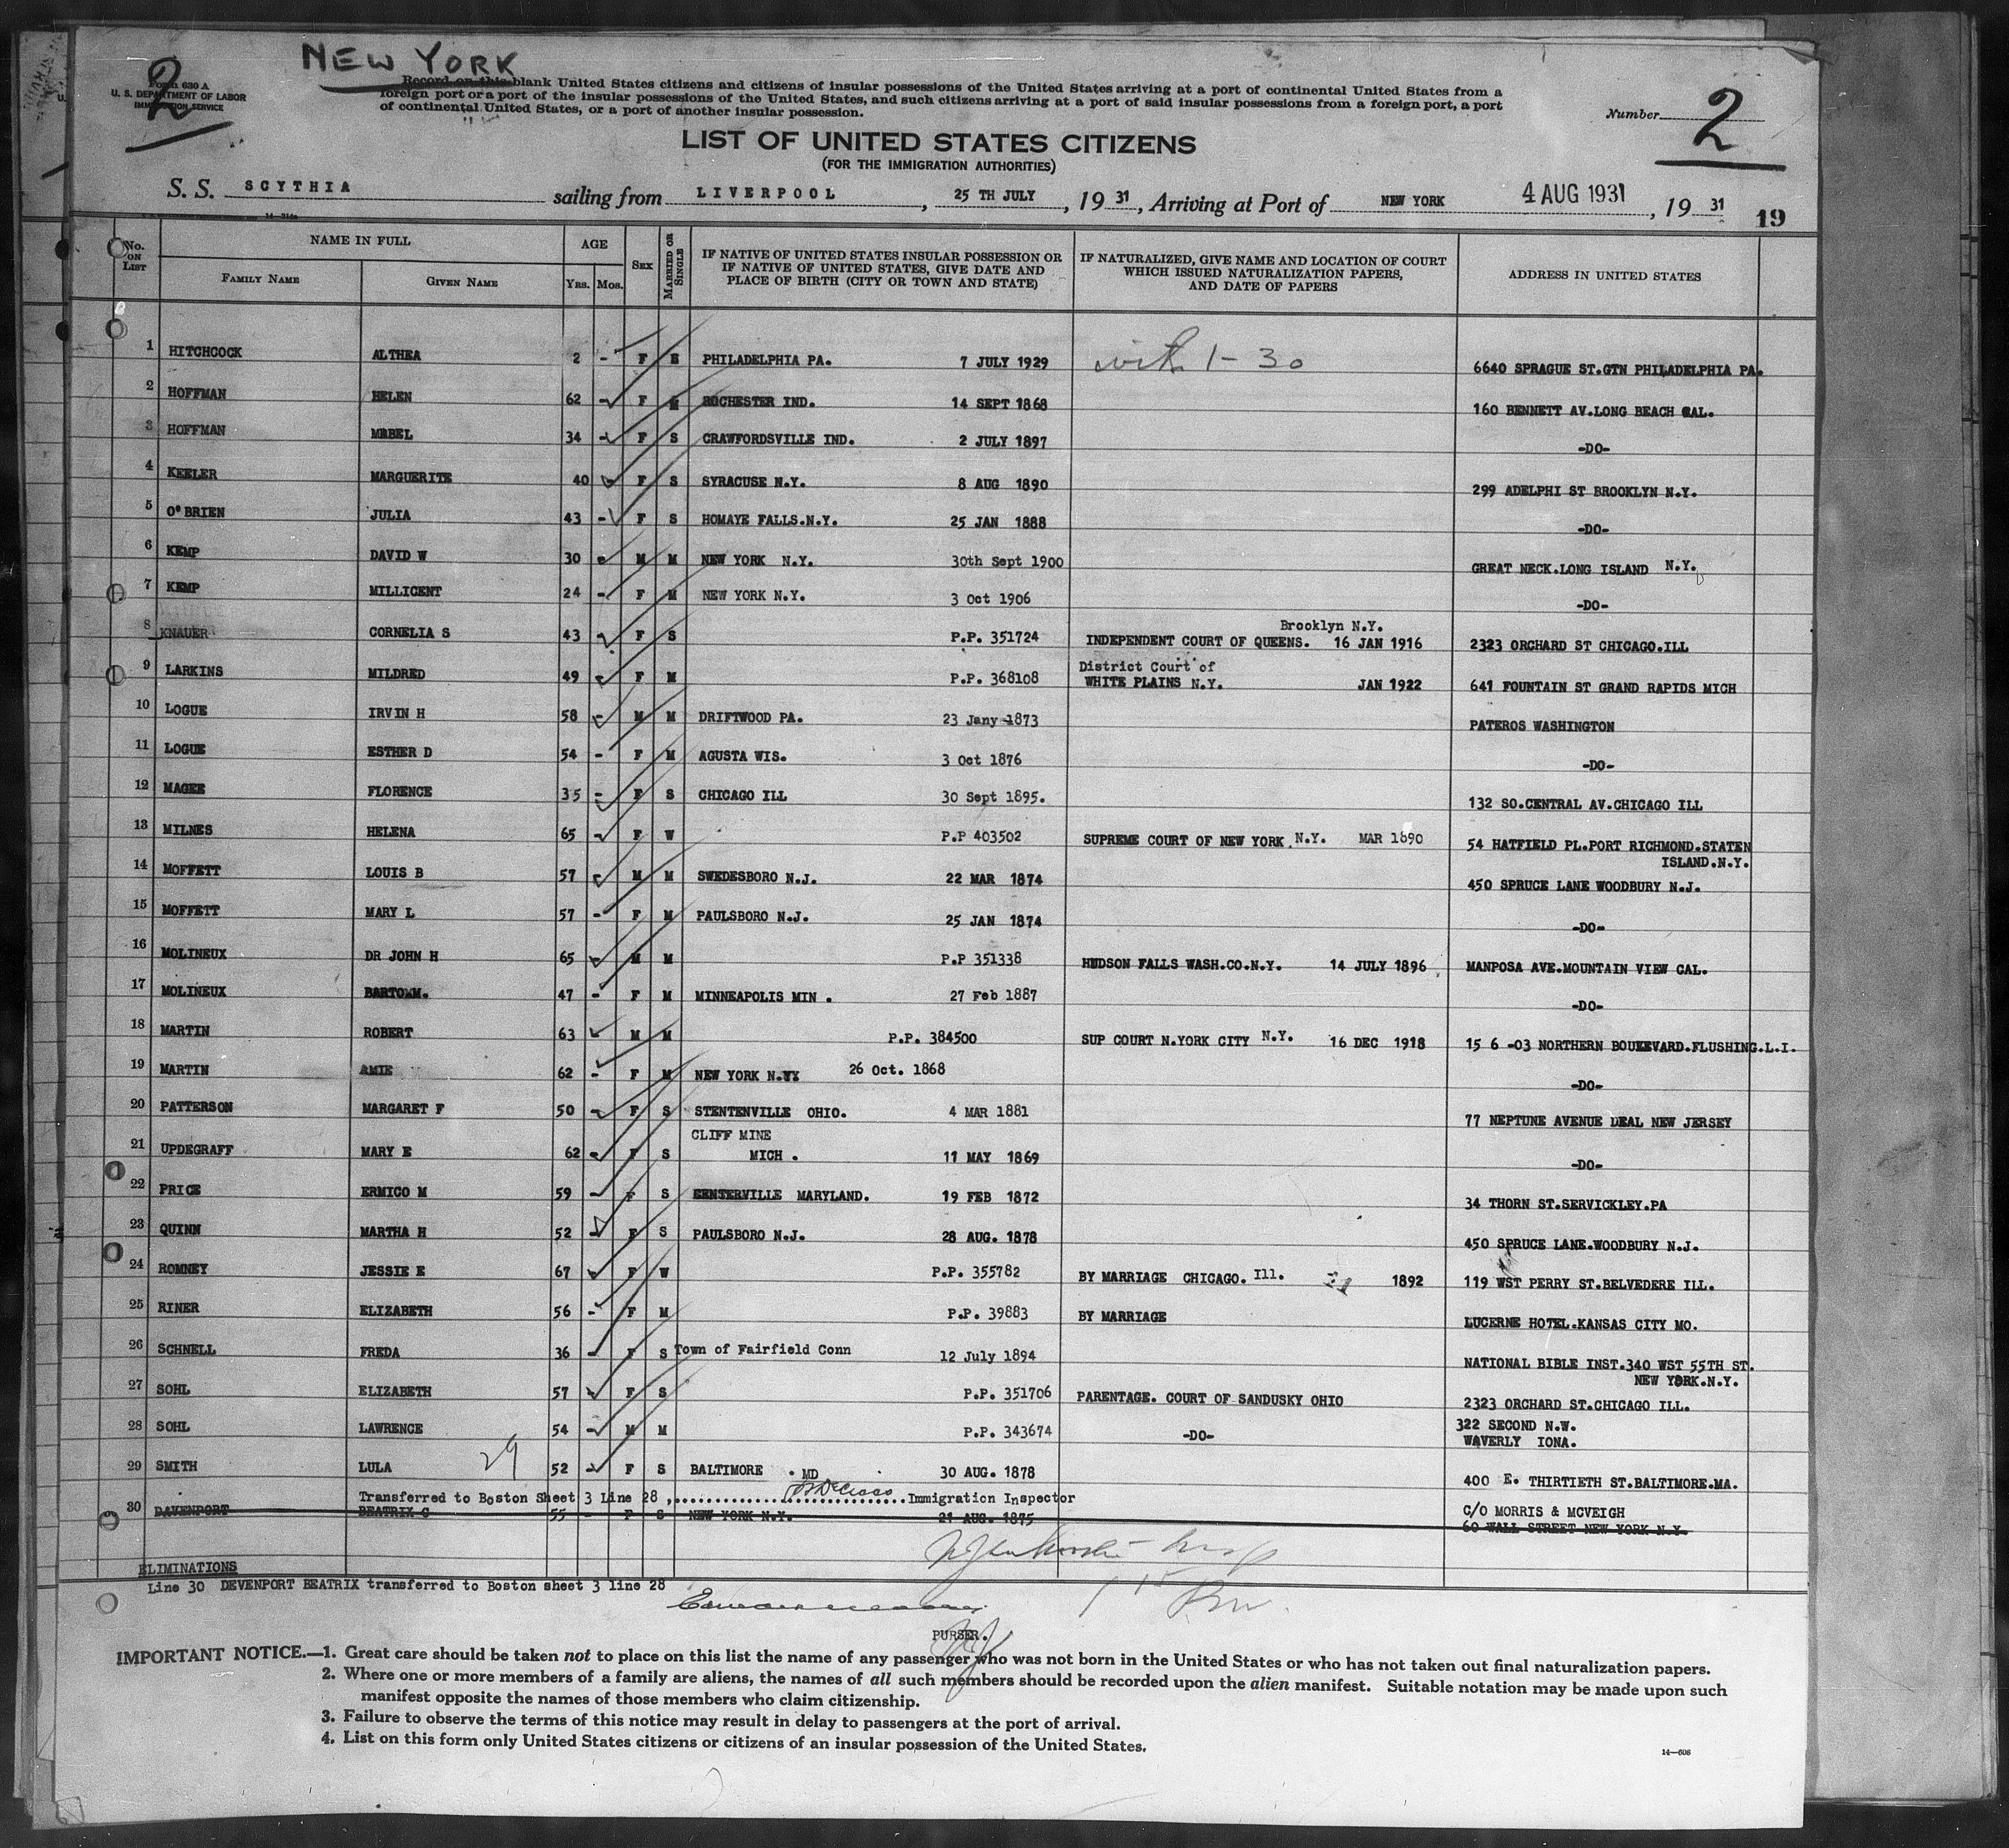 NEW YORK
2
Form 630 A
U. S. DEPARTMENT OF LABOR
IMMIGRATION SERVICE
Record on this blank United States citizens and citizens of insular possessions of the United States arriving at a port of continental United States from a
foreign port or a port of the insular possessions of the United States, and such citizens arriving at a port of said insular possessions from a foreign port, a port
of continental United States, or a port of another insular possession.
Number 2
LIST OF UNITED STATES CITIZENS
(FOR THE IMMIGRATION AUTHORITIES)
S. S. SCYTHIA sailing from LIVERPOOL, 25 TH JULY, 19 31, Arriving at Port of NEW YORK 4 AUG 1931, 19 31 19
No. ON LIST NAME IN FULL FAMILY NAME GIVEN NAME AGE YRS. MOS. SEX MARRIED OR SINGLE
IF NATIVE OF UNITED STATES INSULAR POSSESSION OR IF NATIVE OF UNITED STATES, GIVE DATE AND PLACE OF BIRTH (CITY OR TOWN AND STATE)
IF NATURALIZED, GIVE NAME AND LOCATION OF COURT WHICH ISSUED NATURALIZATION PAPERS, AND DATE OF PAPERS
ADDRESS IN UNITED STATES
1 HITCHCOCK ALTHEA 2 - F S PHILADELPHIA PA. 7 JULY 1929 with 1-30 6640 SPRAGUE ST.GTN PHILADELPHIA PA.
2 HOFFMAN HELEN 62 - F M ROCHESTER IND. 14 SEPT 1868 160 BENNETT AV.LONG BEACH CAL.
3 HOFFMAN MABEL 34 - F S CRAWFORDSVILLE IND. 2 JULY 1897 -DO-
4 KEELER MARGUERITE 40 - F S SYRACUSE N.Y. 8 AUG 1890 299 ADELPHI ST BROOKLYN N.Y.
5 O'BRIEN JULIA 43 - F S HOMAYE FALLS.N.Y. 25 JAN 1888 -DO-
6 KEMP DAVID W 30 - M M NEW YORK N.Y. 30th Sept 1900 GREAT NECK.LONG ISLAND N.Y.
7 KEMP MILLICENT 24 - F M NEW YORK N.Y. 3 Oct 1906 -DO-
8 KNAUER CORNELIA S 43 - F S P.P. 351724 Brooklyn N.Y. INDEPENDENT COURT OF QUEENS. 16 JAN 1916 2323 ORCHARD ST CHICAGO.ILL
9 LARKINS MILDRED 49 - F M P.P. 368108 District Court of WHITE PLAINS N.Y. JAN 1922 641 FOUNTAIN ST GRAND RAPIDS MICH
10 LOGUE IRVIN H 58 - M M DRIFTWOOD PA. 23 Jany 1873 PATEROS WASHINGTON
11 LOGUE ESTHER D 54 - F M AGUSTA WIS. 3 Oct 1876 -DO-
12 MAGEE FLORENCE 35 - F S CHICAGO ILL 30 Sept 1895. 132 SO.CENTRAL AV.CHICAGO ILL
13 MILNES HELENA 65 - F W P.P 403502 SUPREME COURT OF NEW YORK N.Y. MAR 1890 54 HATFIELD PL.PORT RICHMOND.STATEN ISLAND.N.Y.
14 MOFFETT LOUIS B 57 - M M SWEDESBORO N.J. 22 MAR 1874 450 SPRUCE LANE WOODBURY N.J.
15 MOFFETT MARY L 57 - F M PAULSBORO N.J. 25 JAN 1874 -DO-
16 MOLINEUX DR JOHN H 65 - M M P.P 351338 HUDSON FALLS WASH.CO.N.Y. 14 JULY 1896 MANPOSA AVE.MOUNTAIN VIEW CAL.
17 MOLINEUX BARTOWM. 47 - F M MINNEAPOLIS MIN . 27 Feb 1887 -DO-
18 MARTIN ROBERT 63 M M P.P. 384500 SUP COURT N.YORK CITY N.Y. 16 DEC 1918 15 6 -03 NORTHERN BOULEVARD.FLUSHING.L.I.
19 MARTIN AMIE 62 - F M NEW YORK N.Y. 26 Oct. 1868 -DO-
20 PATTERSON MARGARET F 50 - F S STENTENVILLE OHIO. 4 MAR 1881 77 NEPTUNE AVENUE DEAL NEW JERSEY
21 UPDEGRAFF MARY E 62 - F S CLIFF MINE MICH . 11 MAY 1869 -DO-
22 PRICE ERMICO M 59 - F S CENTERVILLE MARYLAND. 19 FEB 1872 34 THORN ST.SERVICKLEY.PA
23 QUINN MARTHA H 52 - F S PAULSBORO N.J. 28 AUG. 1878 450 SPRUCE LANE.WOODBURY N.J.
24 ROMNEY JESSIE E 67 - F W P.P. 355782 BY MARRIAGE CHICAGO. Ill. 1892 119 WST PERRY ST.BELVEDERE ILL.
25 RINER ELIZABETH 56 - F M P.P. 39883 BY MARRIAGE LUCERNE HOTEL.KANSAS CITY MO.
26 SCHNELL FREDA 36 - F S Town of Fairfield Conn 12 July 1894 NATIONAL BIBLE INST.340 WST 55TH ST. NEW YORK.N.Y.
27 SOHL ELIZABETH 57 - F S P.P. 351706 PARENTAGE. COURT OF SANDUSKY OHIO 2323 ORCHARD ST.CHICAGO ILL.
28 SOHL LAWRENCE 54 - M M P.P. 343674 -DO- 322 SECOND N.W. WAVERLY IONA.
29 SMITH LULA 29 52 - F S BALTIMORE . MD 30 AUG. 1878 400 E. THIRTIETH ST.BALTIMORE.MA.
Transferred to Boston Sheet 3 Line 28 ,.............................Immigration Inspector
30 DAVENPORT BEATRIX C 55 - F S NEW YORK N.Y. 21 AUG. 1875 C/O MORRIS & MCVEIGH 60 WALL STREET NEW YORK N.Y.
ELIMINATIONS
Line 30 DEVENPORT BEATRIX transferred to Boston sheet 3 line 28
PURSER.
IMPORTANT NOTICE.—1. Great care should be taken not to place on this list the name of any passenger who was not born in the United States or who has not taken out final naturalization papers.
2. Where one or more members of a family are aliens, the names of all such members should be recorded upon the alien manifest. Suitable notation may be made upon such
manifest opposite the names of those members who claim citizenship.
3. Failure to observe the terms of this notice may result in delay to passengers at the port of arrival.
4. List on this form only United States citizens or citizens of an insular possession of the United States.
14—608